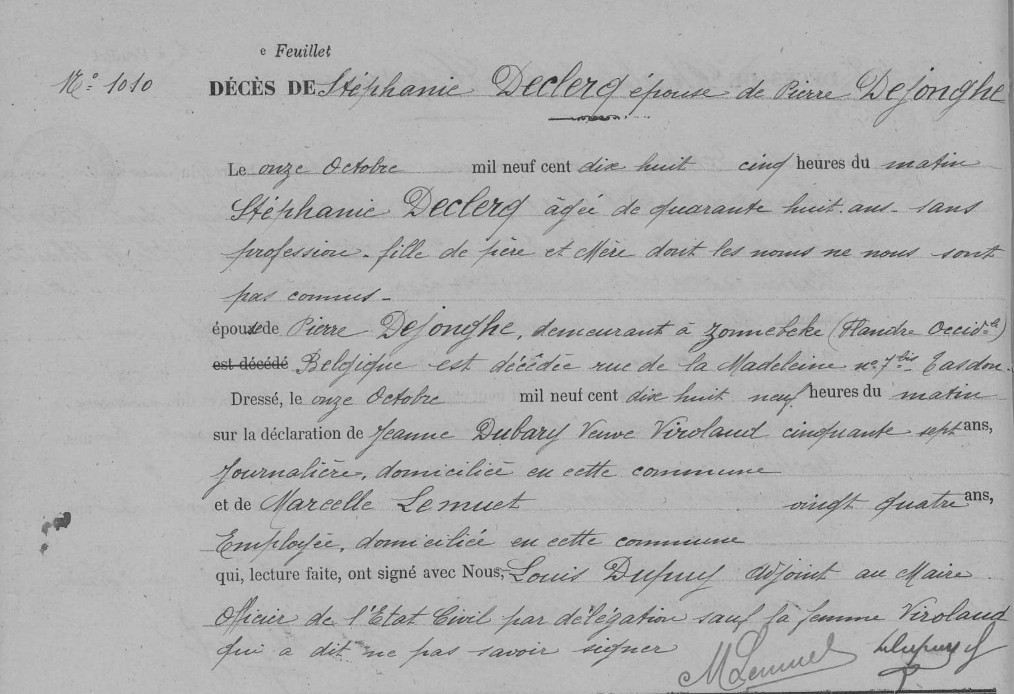 e Feuillet
No 1010 DÉCÈS DE Stéphanie Declerq épouse de Pierre Dejonghe
Le onze Octobre mil neuf cent dix huit cinq heures du matin
Stéphanie Declerq âgée de quarante huit ans - sans
profession - fille de père et Mère dont les noms ne nous sont
pas connus -
épouse de Pierre Dejonghe, demeurant à Zonnebeke (Flandre Occid.le)
est décédé Belgique est décédée rue de la Madeleine no 7 bis Tasdon.
Dressé, le onze Octobre mil neuf cent dix huit neuf heures du matin
sur la déclaration de Jeanne Dubary Veuve Viroland cinquante sept ans,
Journalière, domiciliée en cette commune
et de Marcelle Lemuet vingt quatre ans,
Employée, domiciliée en cette commune
qui, lecture faite, ont signé avec Nous, Louis Dupuy adjoint au Maire
Officier de l'Etat Civil par délégation sauf la femme Viroland
qui a dit ne pas savoir signer M Lemuet Dupuy